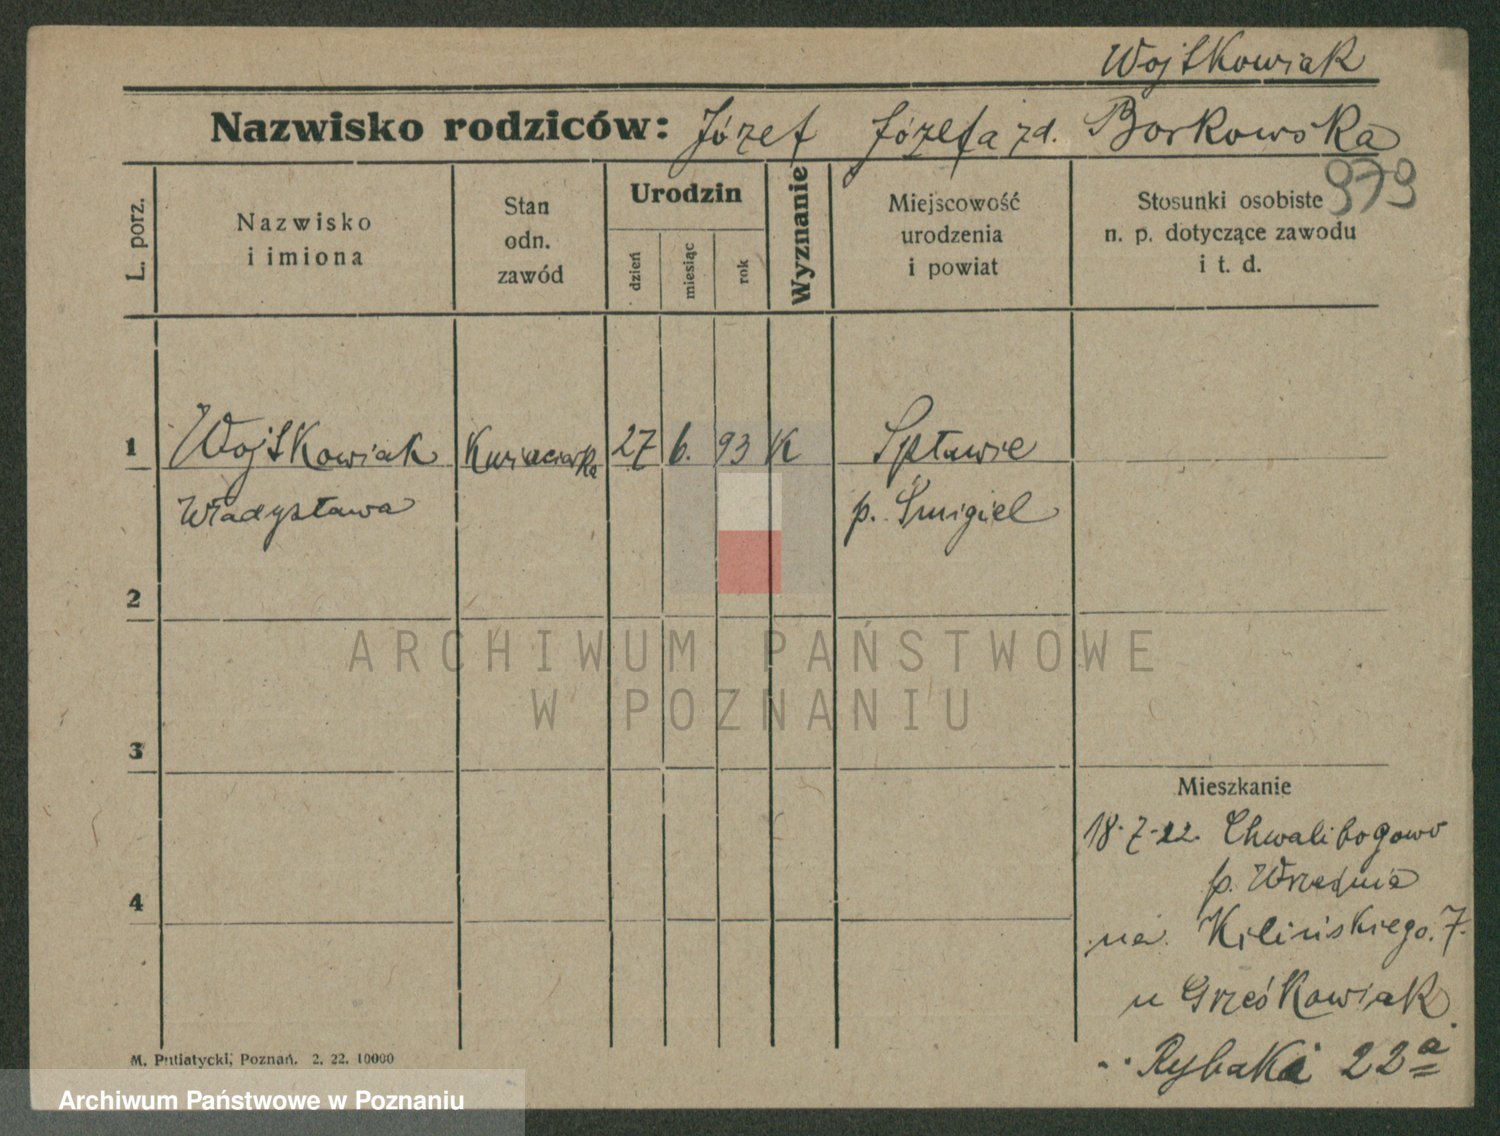 Wojtkowiak
Nazwisko rodziców: Józef Józefa zd. Borkowska
979
L. porz.
Nazwisko
i imiona
Stan
odn.
zawód
Urodzin
dzień
miesiąc
rok
Wyznanie
Miejscowość
urodzenia
i powiat
Stosunki osobiste
n. p. dotyczące zawodu
i t. d.
1 Wojtkowiak Kwiaciarka 27 6. 93 K Spławie
Władysława p. Śmigiel
2
3
4
ARCHIWUM PAŃSTWOWE
W POZNANIU
Mieszkanie
18-7-22. Chwalibogowo
p. Września
na Kilińskiego. 7.
u Grześkowiak
" Rybaki 22a
M. Putiatycki, Poznań. 2. 22. 10000
Archiwum Państwowe w Poznaniu